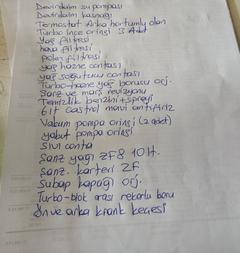 Devirdaim su pompası
Devirdaim kasnağı
Termostat Arka hortumlu olan
Turbo ince oringi 3 Adet
Yağ filtresi
hava filtresi
polen filtresi
yağ hazne contası
yağ soğutucu contası
Turbo-hazne yağ borusu orj.
Şarz ve marş revizyonu
Temizlik benzini + spreyi
6 lt Castrol mavi antifiriz
Vakum pompa oringi (2 adet)
yakıt pompa oringi
Sıvı conta
Şanz yağı ZF8 10 lt.
Şanz. karteri ZF
Subap kapağı orj.
Turbo-blok arası rekorlu boru
Ön ve arka krank keçesi